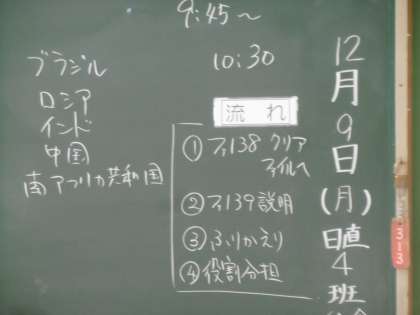 9:45～
10:30
ブラジル
ロシア
インド
中国
南アフリカ共和国
流れ
①ファ138 クリア
ファイルへ
②ファ139説明
③ふりかえり
④役割分担
12
月
9
日
(月)
日直
4
班
313